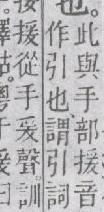 也。此與手部援音
作引也、謂引詞
援從手爰聲訓